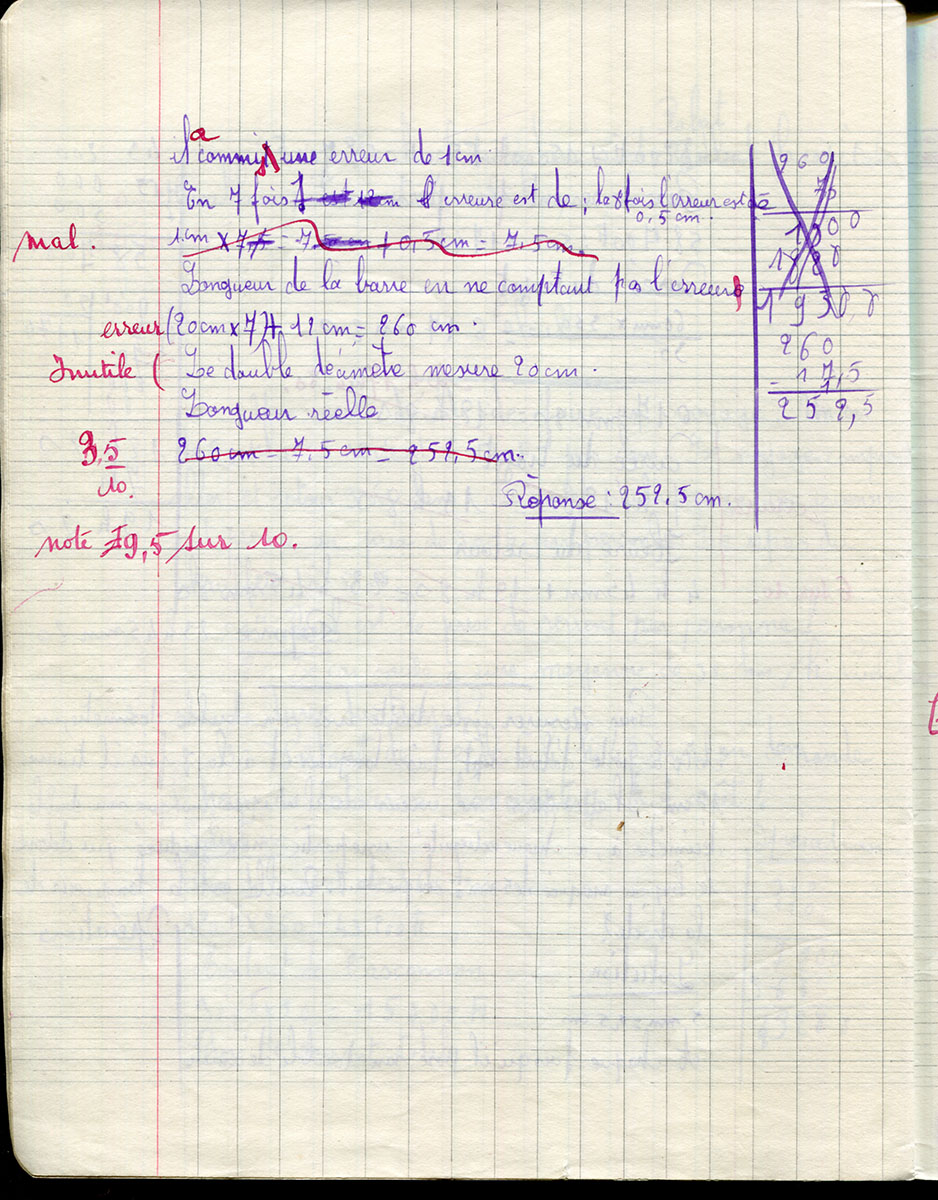 a
Il commis une erreur de 1cm.
En 7 fois l'erreure est de ; la 8 fois l'erreur est de
0,5 cm.
mal.
1cm × 7,5 = 7,5cm + 0,5cm = 7,5cm.
Longueur de la barre en ne comptant pas l'erreur
erreur (20cm × 7)+ 12cm = 260 cm.
Inutile ( Le double décimètre mesure 20cm.
Longueur réelle
9,5
10.
260cm - 7,5cm = 252,5cm.
Réponse : 252,5cm.
note 9,5 sur 10.
260
75
1300
19500
260
- 17,5
252,5